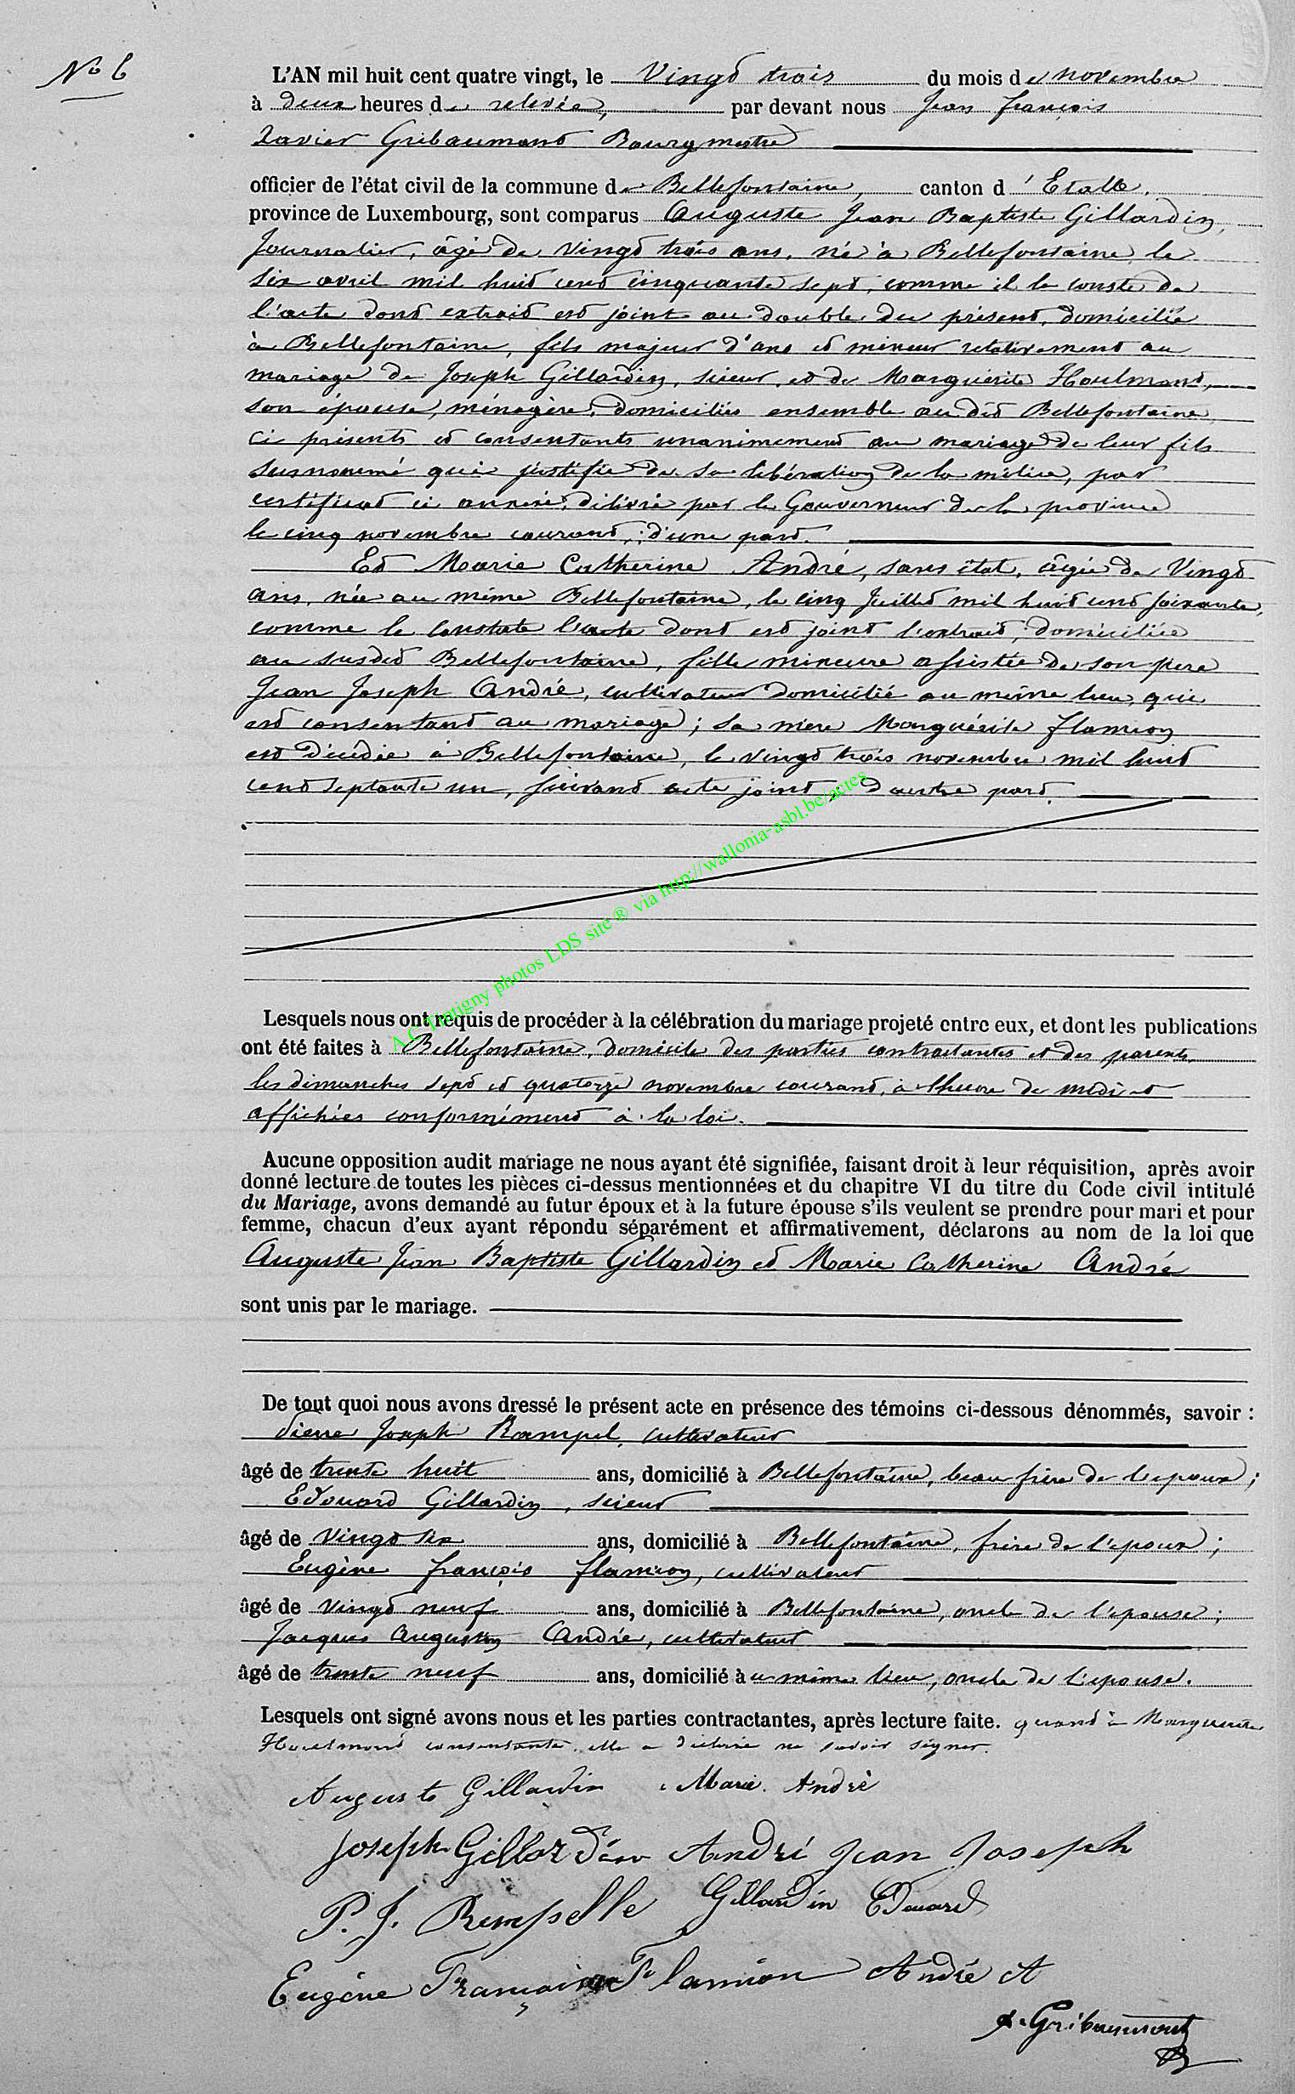 No 6
L'AN mil huit cent quatre vingt, le Vingt trois du mois de novembre
à deux heures de relevée, par devant nous Jean françois
Xavier Gribaumont Bourgmestre
officier de l'état civil de la commune de Bellefontaine, canton d'Etalle.
province de Luxembourg, sont comparus Auguste Jean Baptiste Gillardin,
Journalier, âgé de vingt trois ans, né à Bellefontaine le
six avril mil huit cent cinquante sept, comme il le conste de
l'acte dont extrait est joint au double du présent, domicilié
à Bellefontaine, fils majeur d'ans et mineur relativement au
mariage de Joseph Gillardin, scieur, et de Marguerite Houlmont,
son épouse, ménagère, domiciliés ensemble au dit Bellefontaine
ci présents et consentants unanimement au mariage de leur fils
susnommé qui justifie de sa libération de la milice, par
certificat ci annexé, délivré par le Gouverneur de la province
le cinq novembre courant, d'une part.
Et Marie Catherine André, sans état, âgée de Vingt
ans, née au même Bellefontaine, le cinq Juillet mil huit cent soixante,
comme le constate l'acte dont est joint l'extrait, domiciliée
au susdit Bellefontaine, fille mineure assistée de son père
Jean Joseph André, cultivateur domicilié au même lieu, qui
est consentant au mariage; sa mère Marguérite flamion
est décédée à Bellefontaine, le vingt trois novembre mil huit
cent septante un, suivant acte joint, d'autre part.
A.C Tintigny photos LDS site ® via http://wallonia-asbl.be/actes
Lesquels nous ont requis de procéder à la célébration du mariage projeté entre eux, et dont les publications
ont été faites à Bellefontaine, domicile des parties contractantes et des parents
les dimanches sept et quatorze novembre courant, à l'heure de midi et
affichées conformément à la loi.
Aucune opposition audit mariage ne nous ayant été signifiée, faisant droit à leur réquisition, après avoir
donné lecture de toutes les pièces ci-dessus mentionnées et du chapitre VI du titre du Code civil intitulé
du Mariage, avons demandé au futur époux et à la future épouse s'ils veulent se prendre pour mari et pour
femme, chacun d'eux ayant répondu séparément et affirmativement, déclarons au nom de la loi que
Auguste Jean Baptiste Gillardin et Marie Catherine André
sont unis par le mariage.
De tout quoi nous avons dressé le présent acte en présence des témoins ci-dessous dénommés, savoir :
Pierre Joseph Rampel, cultivateur
âgé de trente huit ans, domicilié à Bellefontaine, beau frère de l'époux;
Edouard Gillardin, scieur
âgé de vingt six ans, domicilié à Bellefontaine, frère de l'époux;
Eugène françois flamion, cultivateur
âgé de vingt neuf ans, domicilié à Bellefontaine, oncle de l'épouse;
Jacques Augustin André, cultivateur
âgé de trente neuf ans, domicilié au même lieu, oncle de l'épouse.
Lesquels ont signé avons nous et les parties contractantes, après lecture faite. quand à Marguerite
Houlmont consentante, elle a déclaré ne savoir signer.
Auguste Gillardin Marie André
Joseph Gillardin André Jean Joseph
P. J. Rempselle Gillardin Edouard
Eugène François Flamion André A
X. Gribaumont